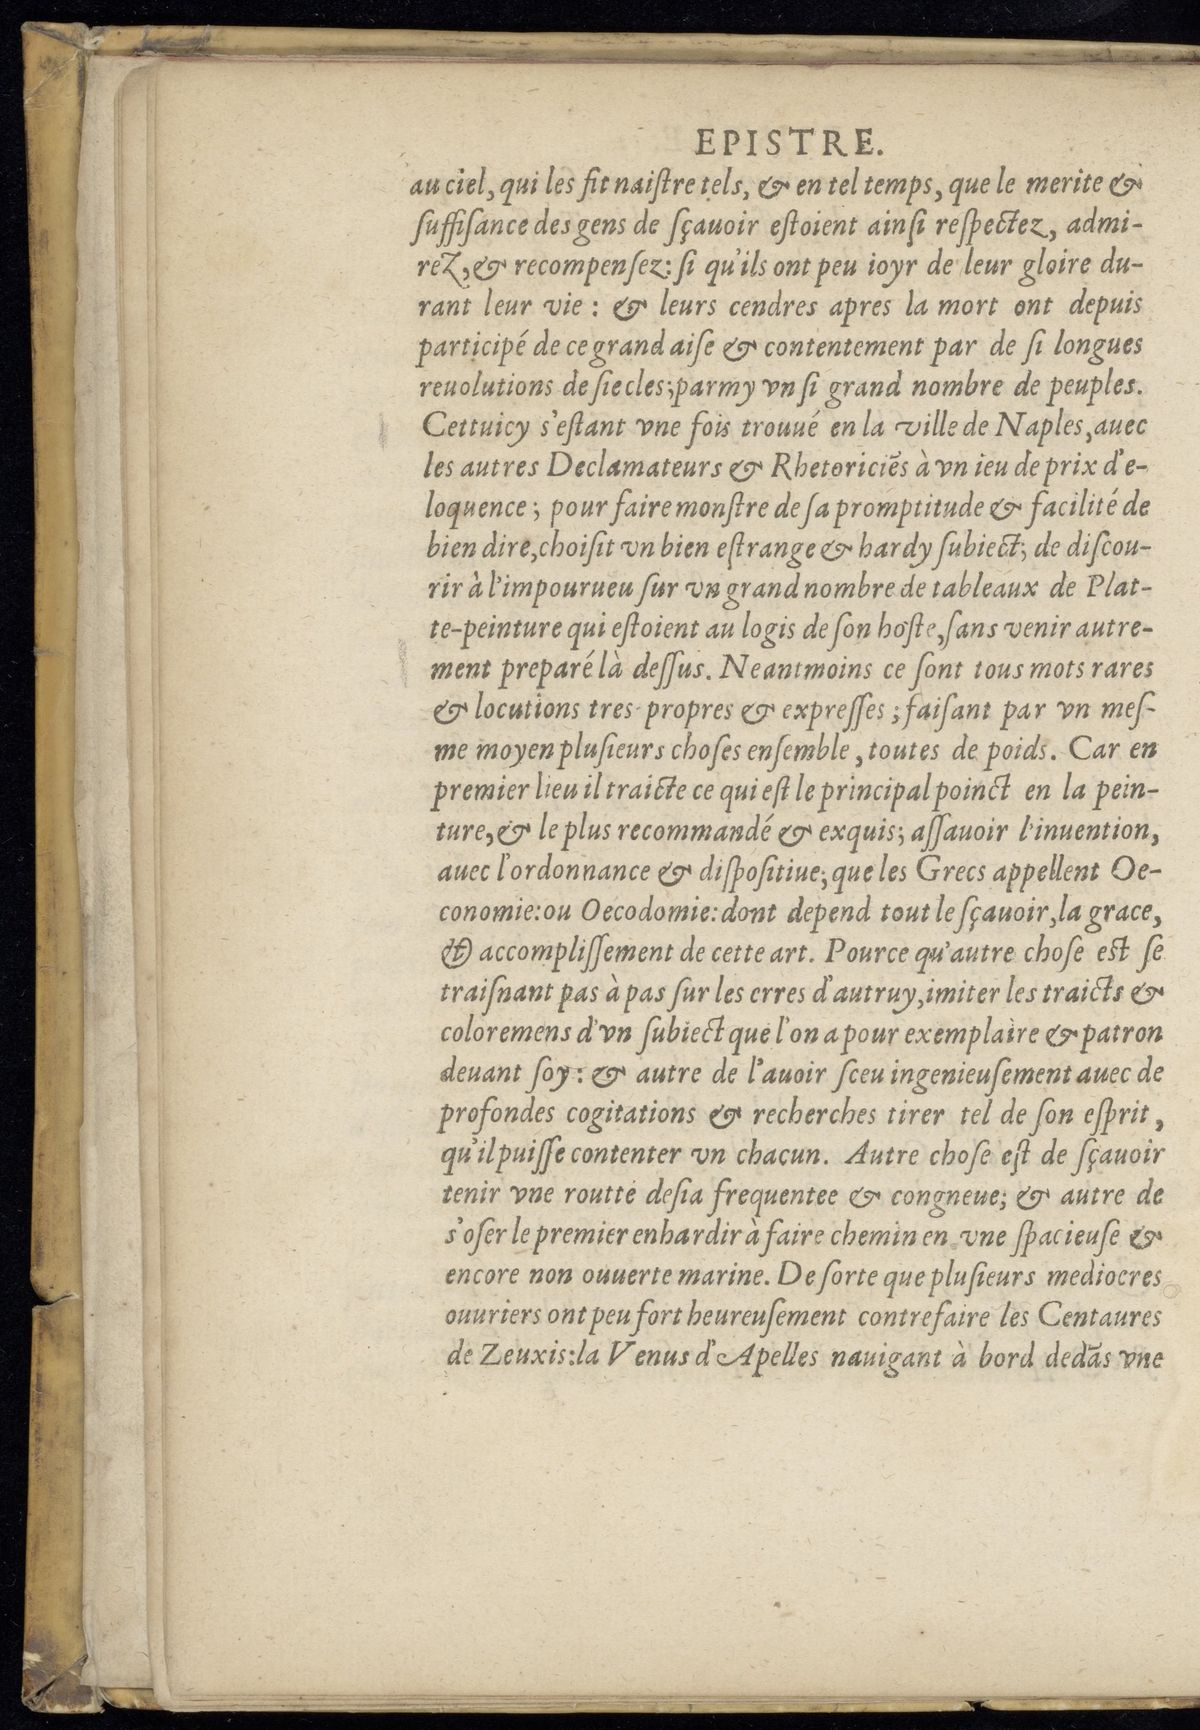 EPISTRE.
au ciel, qui les fit naiſtre tels, & en tel temps, que le merite &
ſuffiſance des gens de ſçauoir eſtoient ainſi reſpectez, admi-
rez, & recompenſez: ſi qu'ils ont peu ioyr de leur gloire du-
rant leur vie : & leurs cendres apres la mort ont depuis
participé de ce grand aiſe & contentement par de ſi longues
reuolutions de ſiecles; parmy vn ſi grand nombre de peuples.
Cettuicy s'eſtant vne fois trouué en la ville de Naples, auec
les autres Declamateurs & Rhetoriciẽs à vn ieu de prix d'e-
loquence ; pour faire monſtre de ſa promptitude & facilité de
bien dire, choiſit vn bien eſtrange & hardy ſubiect; de diſcou-
rir à l'impourueu ſur vn grand nombre de tableaux de Plat-
te-peinture qui eſtoient au logis de ſon hoſte, ſans venir autre-
ment preparé là deſſus. Neantmoins ce ſont tous mots rares
& locutions tres-propres & expreſſes ; faiſant par vn meſ-
me moyen pluſieurs choſes enſemble, toutes de poids. Car en
premier lieu il traicte ce qui eſt le principal poinct en la pein-
ture, & le plus recommandé & exquis; aſſauoir l'inuention,
auec l'ordonnance & diſpoſitiue; que les Grecs appellent Oe-
conomie: ou Oecodomie: dont depend tout le ſçauoir, la grace,
& accompliſſement de cette art. Pource qu'autre choſe eſt ſe
traiſnant pas à pas ſur les erres d'autruy, imiter les traicts &
coloremens d'vn ſubiect que l'on a pour exemplaire & patron
deuant ſoy : & autre de l'auoir ſceu ingenieuſement auec de
profondes cogitations & recherches tirer tel de ſon eſprit,
qu'il puiſſe contenter vn chacun. Autre choſe eſt de ſçauoir
tenir vne routte deſia frequentee & congneue; & autre de
s'oſer le premier enhardir à faire chemin en vne ſpacieuſe &
encore non ouuerte marine. De ſorte que pluſieurs mediocres
ouuriers ont peu fort heureuſement contrefaire les Centaures
de Zeuxis: la Venus d'Apelles nauigant à bord dedãs vne